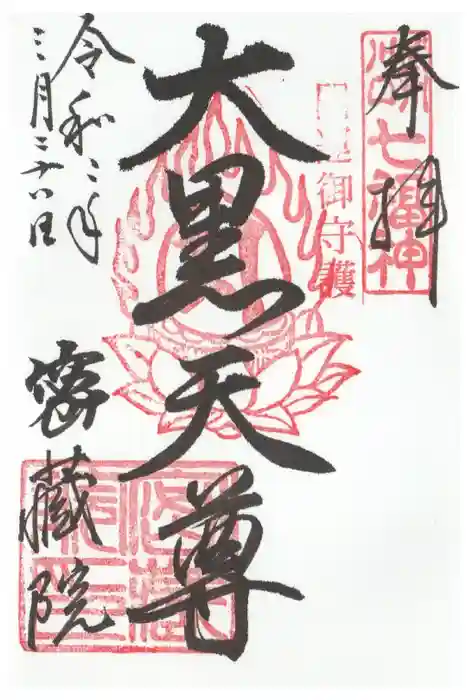 奉拝
七福神
運御守護
大黒天尊
令和二年
三月二十八日
密藏院